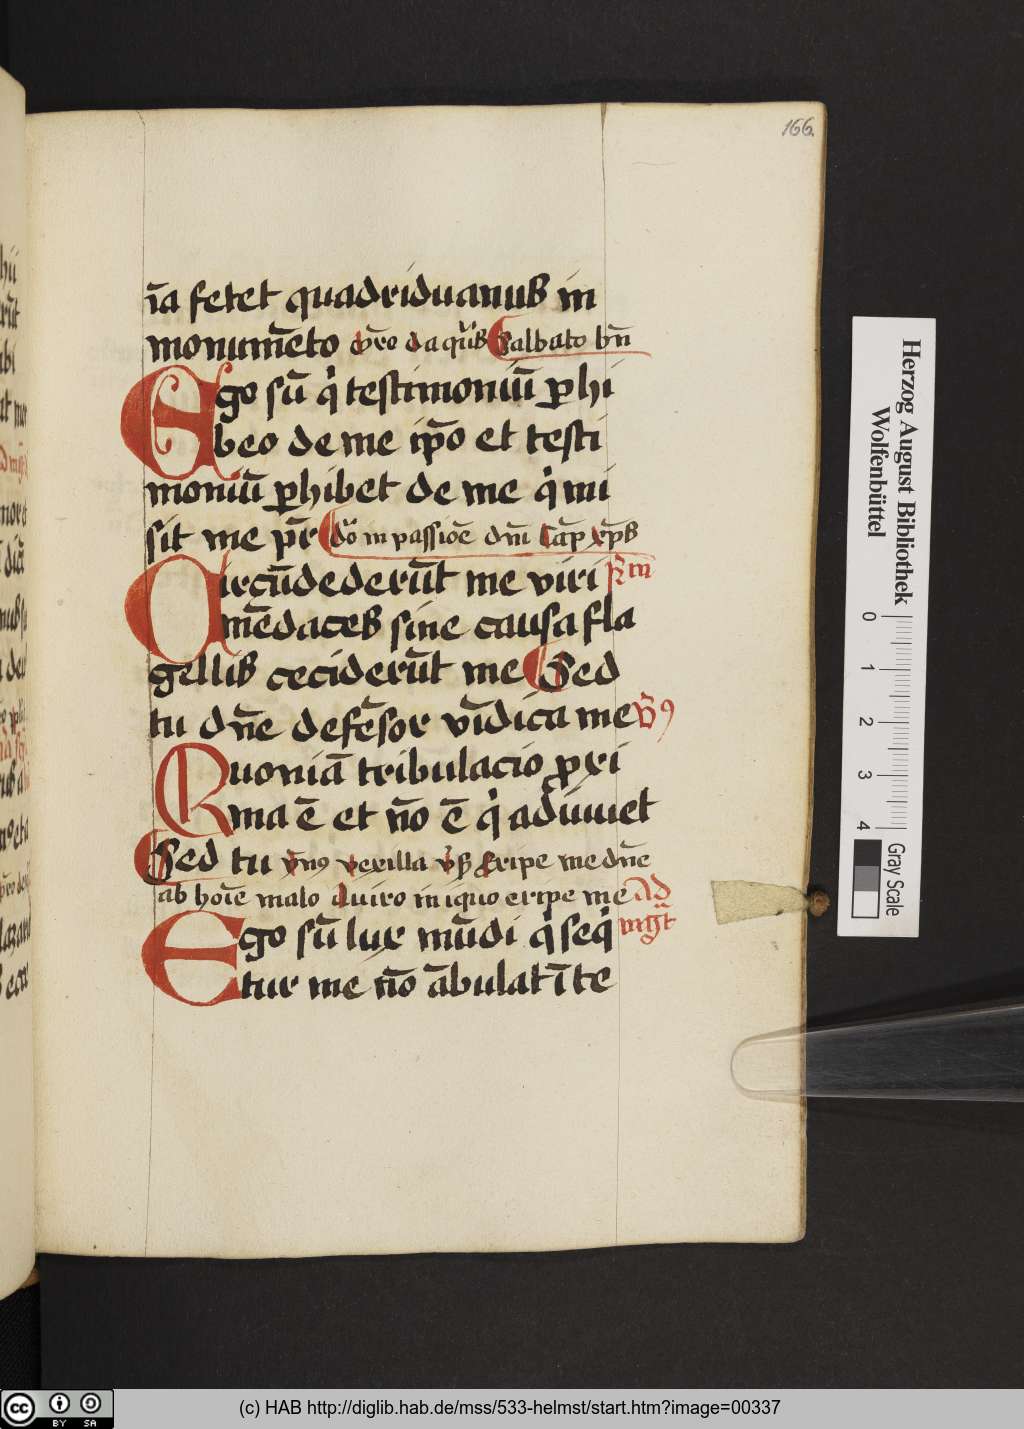 166.
īa fetet quadriduanus in
monumēto Oro da qus Sabbato bn̄
Ego sū qͥ testimoniū ꝑhi
beo de me ip̄o et testi
moniū ꝑhibet de me qͥ mi
sit me pr̄ Do in passiōe dn̄i Cap̄
Circūdederūt me viri
mēdaces sine causa fla
gellis ceciderūt me Sed
tu dn̄e defēsor vīdica me
Quoniā tribulacio ꝓxi
ma ē et nō ē qͥ adiuuet
Sed tu ymꝰ vexilla Eripe me dn̄e
ab hoīe malo A uiro iniquo eripe me Ad
Ego sū lux mūdi qͥ seqͥ mg̅t
tur me nō ābulat ī te
Herzog August Bibliothek
Wolfenbüttel
0 1 2 3 4
Gray Scale
(c) HAB http://diglib.hab.de/mss/533-helmst/start.htm?image=00337
cc BY SA